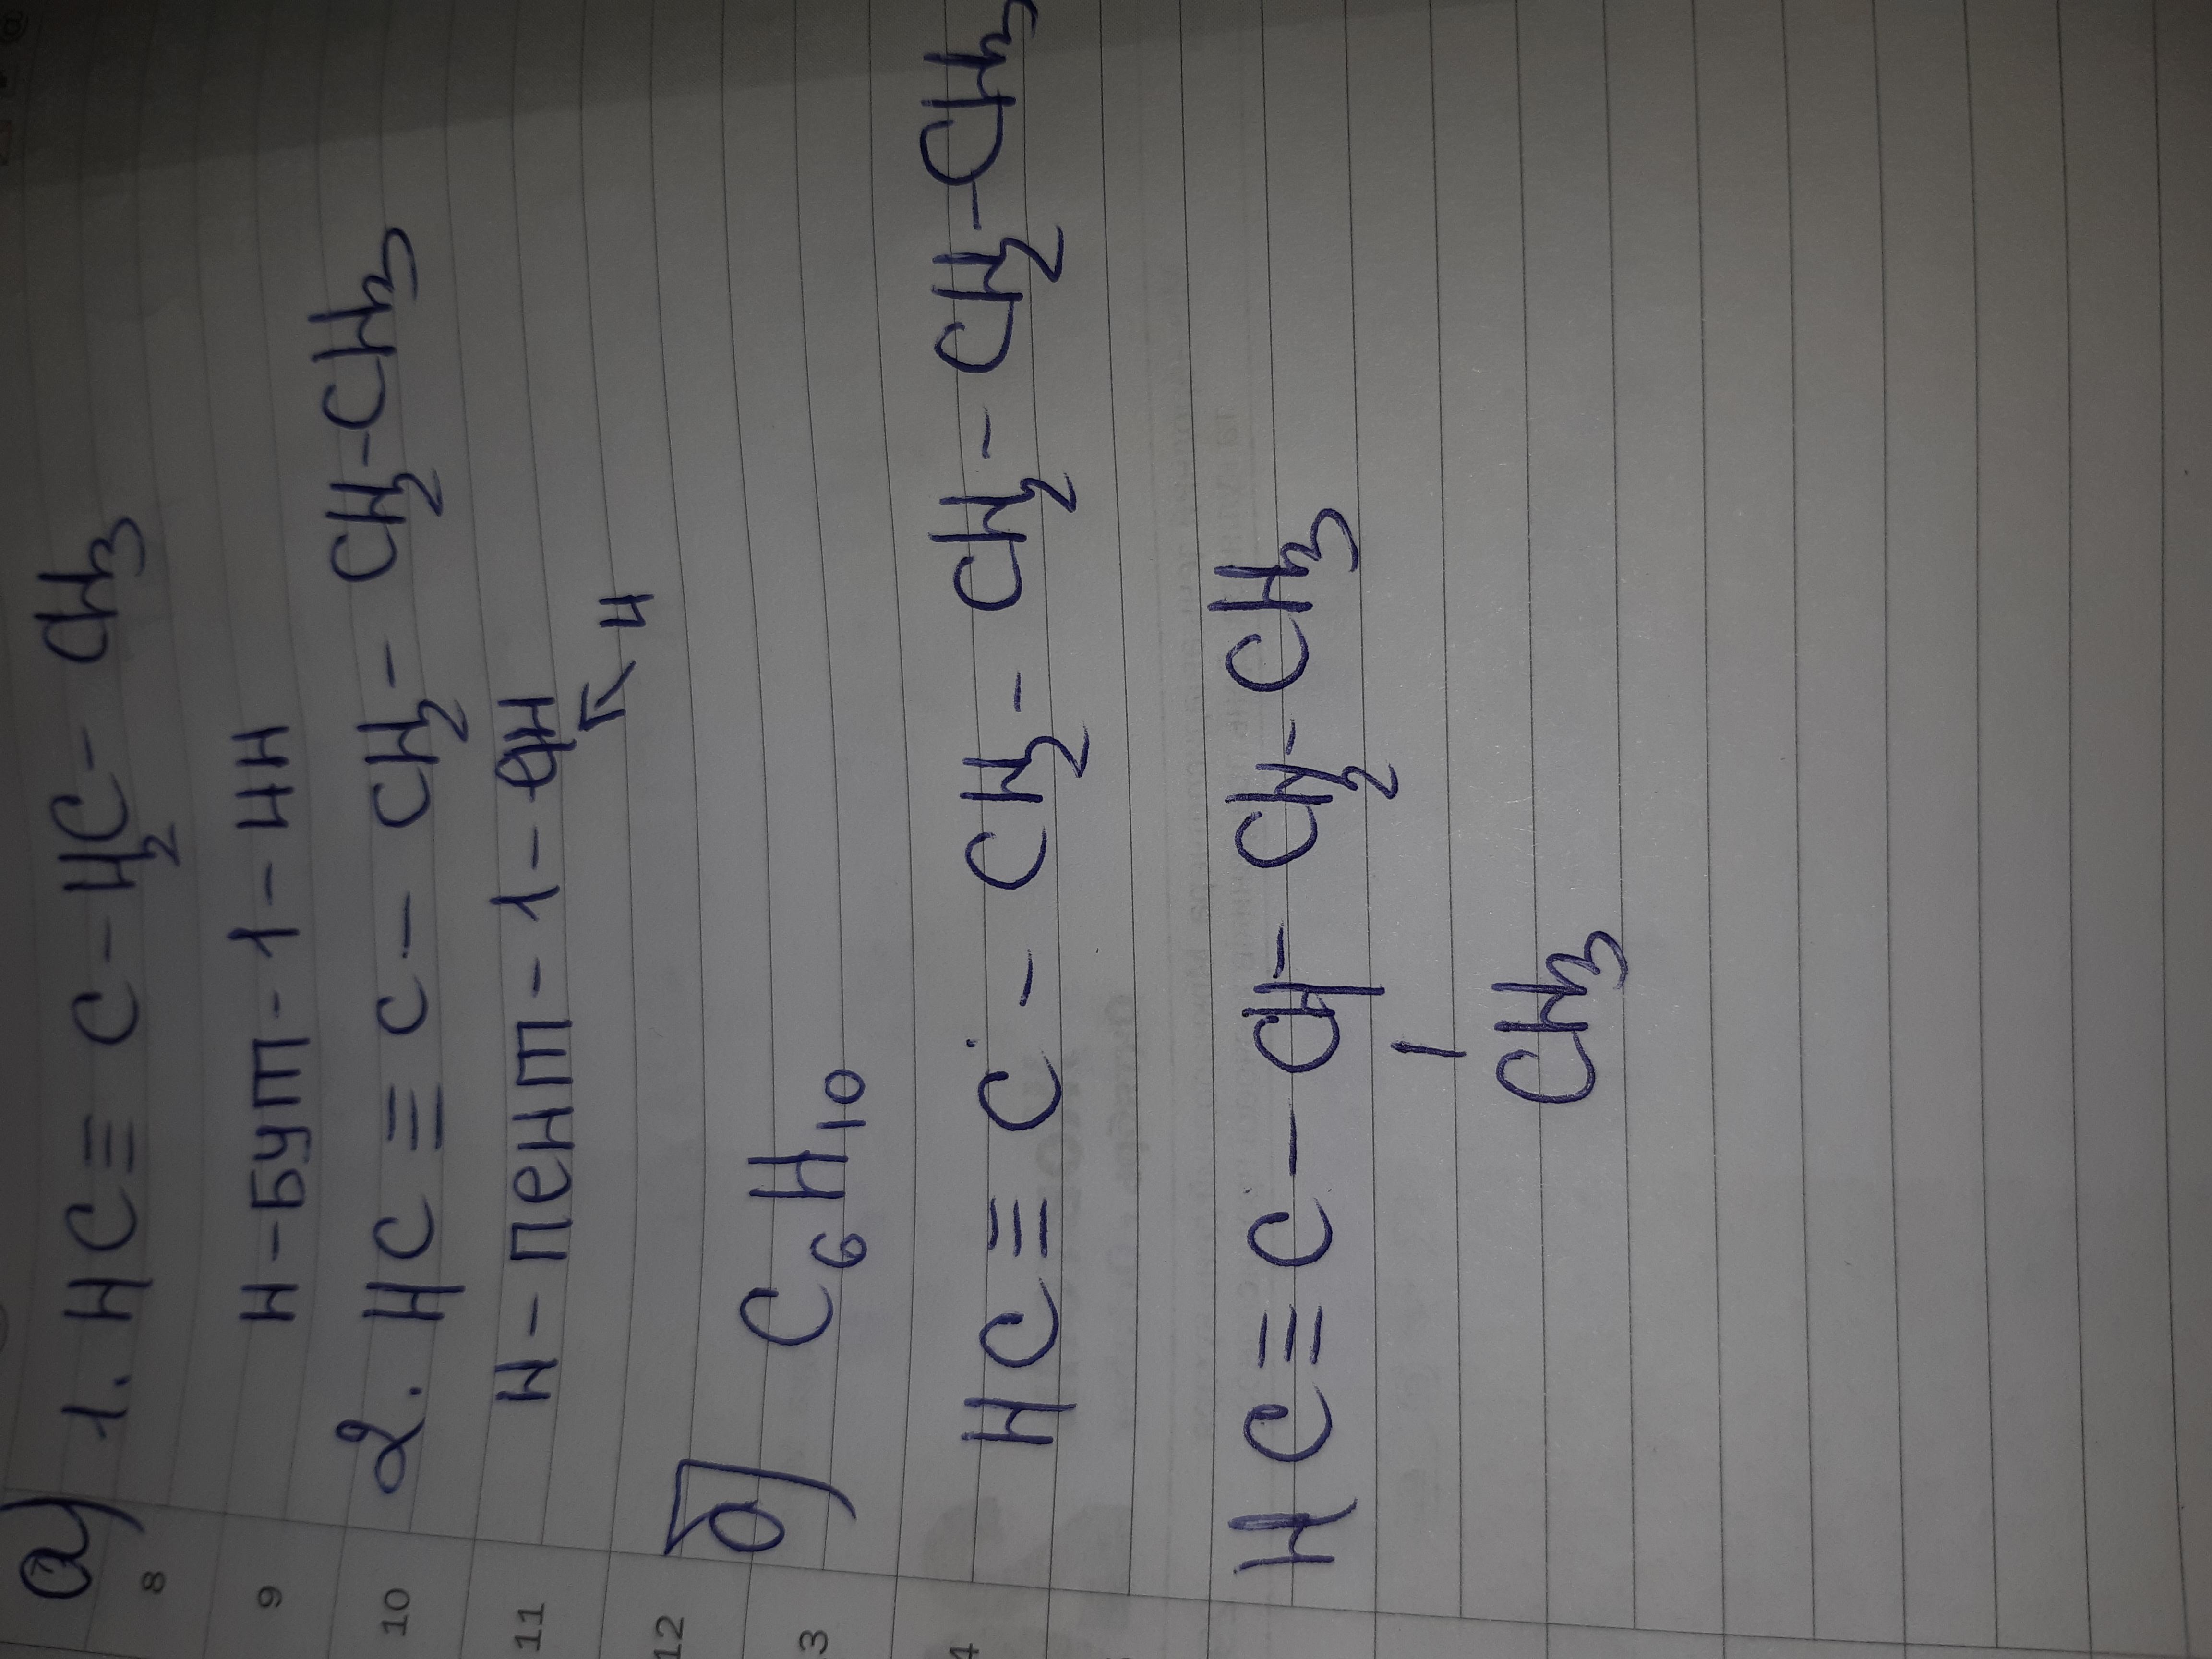 а)
1. HC ≡ C - H₂C - CH₃
н-бут-1-ин
2. HC ≡ C - CH₂ - CH₂-CH₃
н-пент-1-ен
и
б) C₆H₁₀
HC ≡ C - CH₂ - CH₂ - CH₂-CH₃
HC ≡ C - CH - CH₂-CH₃
CH₃
8
9
10
11
12
3
4